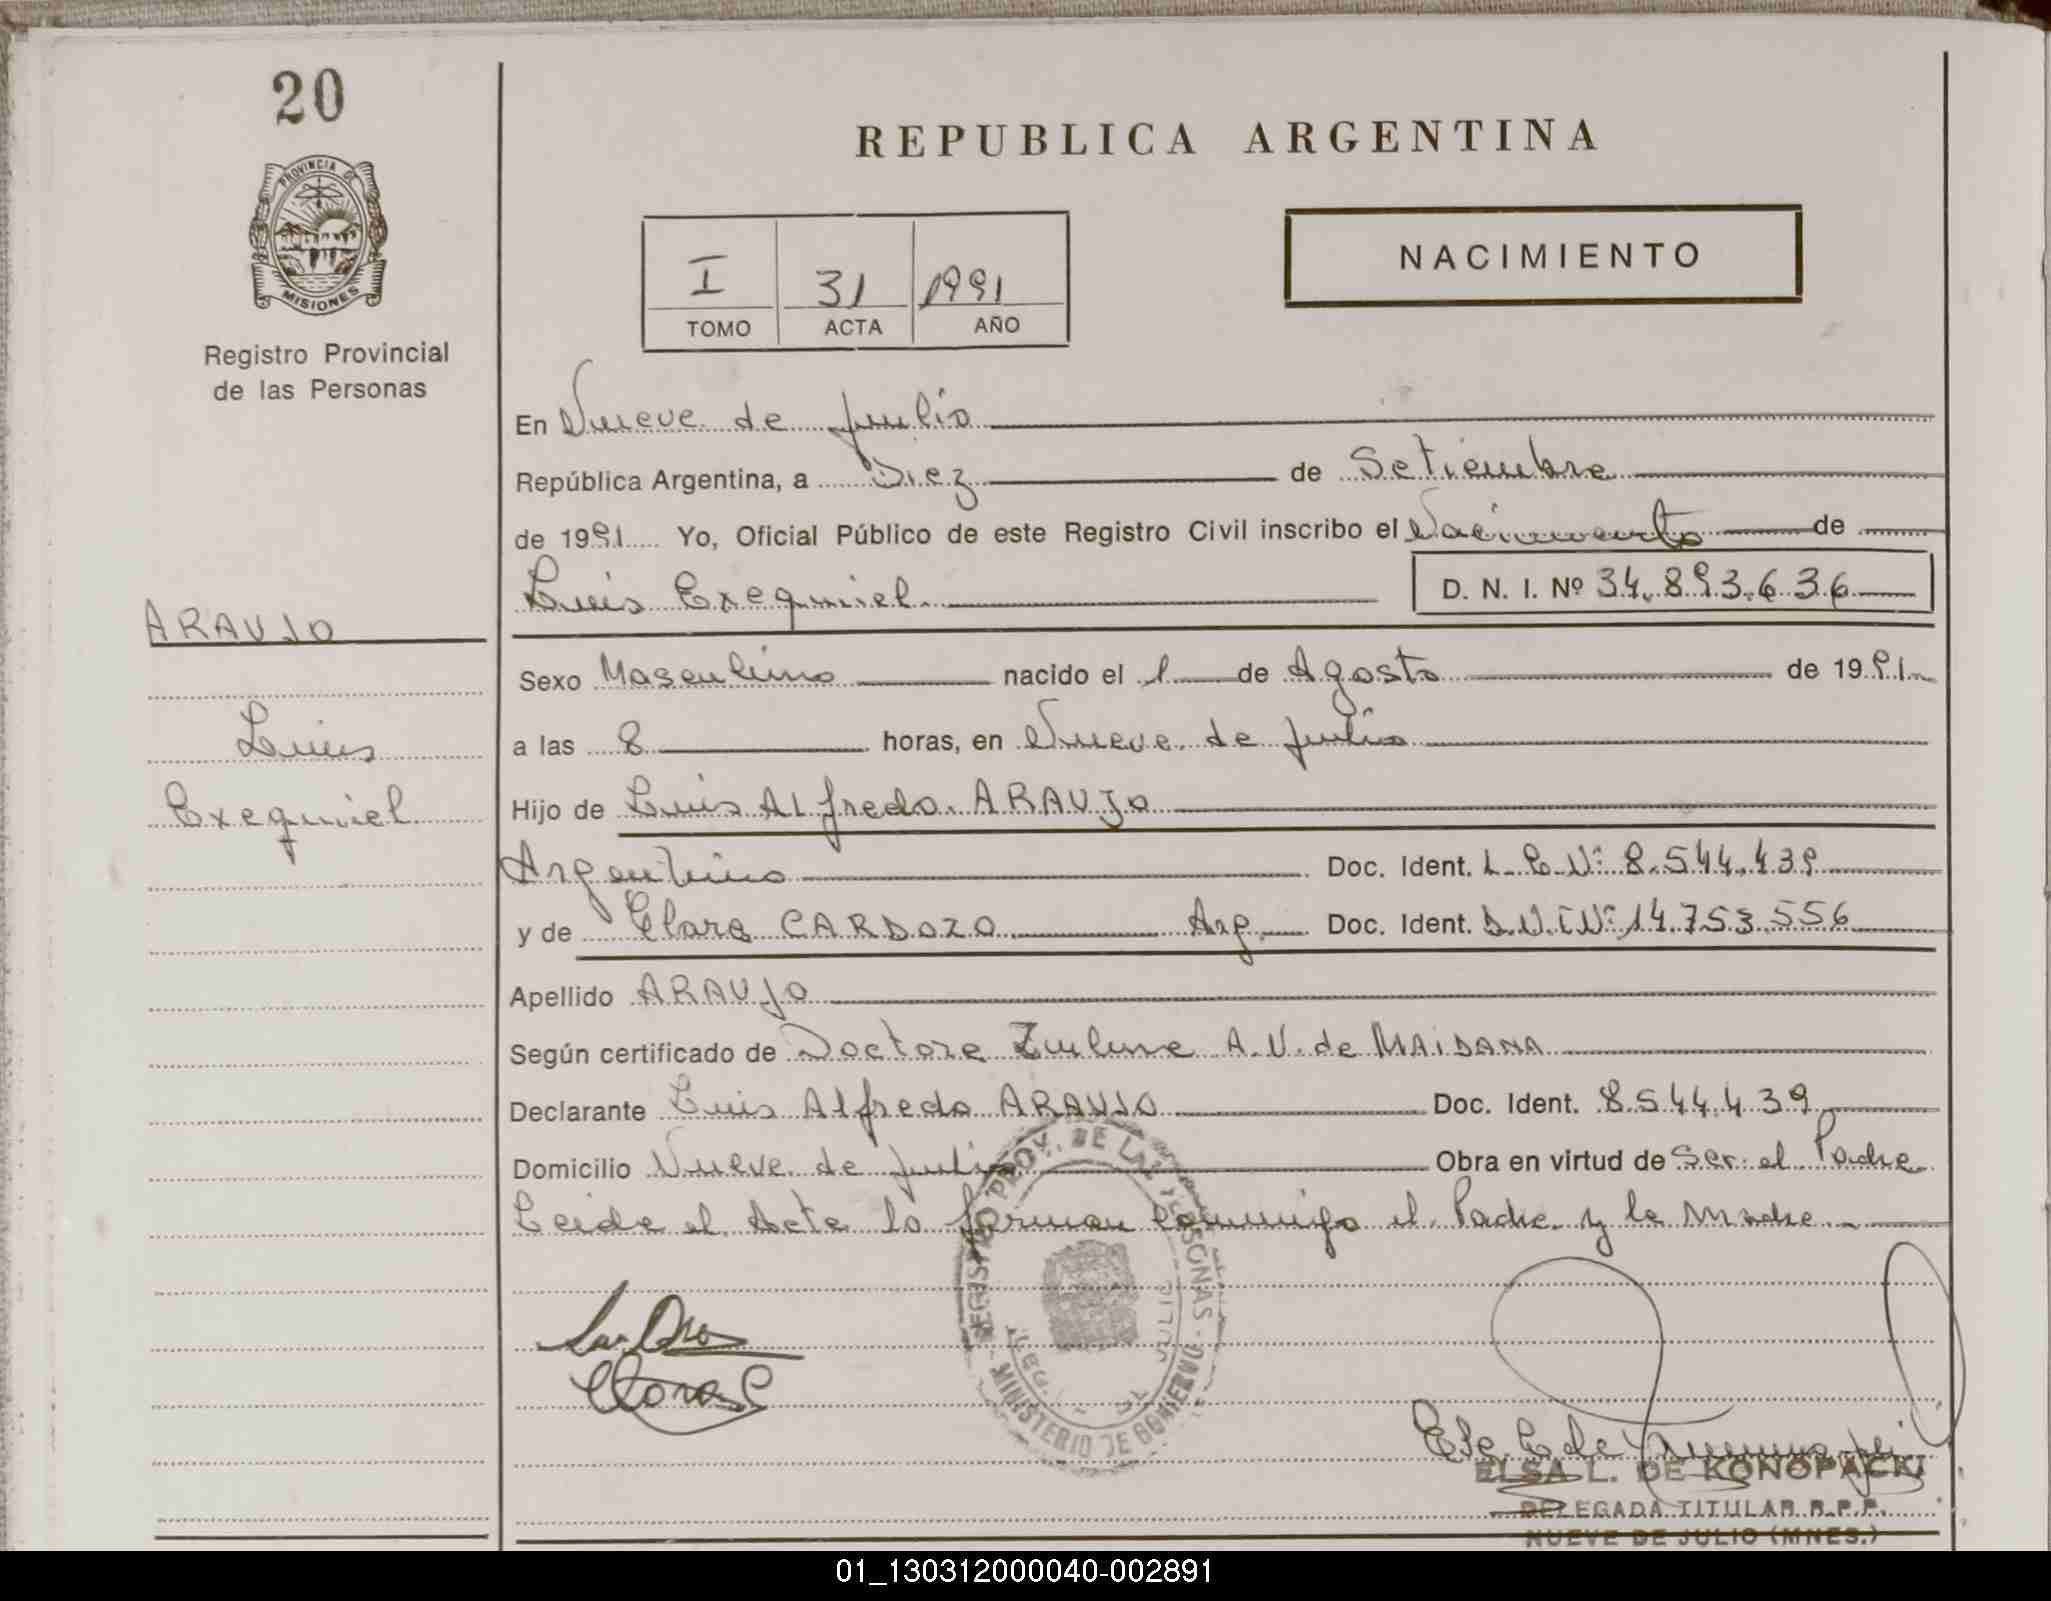 20
PROVINCIA DE
MISIONES
Registro Provincial
de las Personas
ARAUJO
Luis
Exequiel
REPUBLICA ARGENTINA
I 31 1991
TOMO ACTA AÑO
NACIMIENTO
En Nueve de Julio
República Argentina, a Diez de Setiembre
de 1991 Yo, Oficial Público de este Registro Civil inscribo el Nacimiento de
Luis Exequiel D. N. I. Nº 34.893.636
Sexo Masculino nacido el 1 de Agosto de 1991
a las 8 horas, en Nueve de Julio
Hijo de Luis Alfredo ARAUJO
Argentino Doc. Ident. L.E.Nº 8.544.439
y de Clara CARDOZO Arg. Doc. Ident. D.N.I Nº 14.753.556
Apellido ARAUJO
Según certificado de Doctora Zulma A.V. de MAIDANA
Declarante Luis Alfredo ARAUJO Doc. Ident. 8.544.439
Domicilio Nueve de Julio Obra en virtud de Ser el Padre
Leida el Acta la firman conmigo el Padre y la Madre
REGISTRO PROV. DE LAS PERSONAS - MINISTERIO DE GOBIERNO
Clara C
ELSA L. DE KONOPACKI
DELEGADA TITULAR R.P.P.
NUEVE DE JULIO (MNES.)
01_130312000040-002891